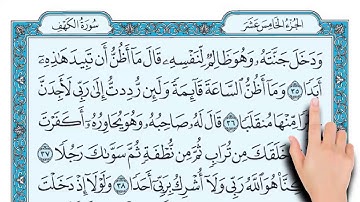 سُورَةُ الكَهْفِ
الجُزْءُ الخَامِسَ عَشَرَ
وَدَخَلَ جَنَّتَهُۥ وَهُوَ ظَالِمٌ لِّنَفْسِهِۦ قَالَ مَآ أَظُنُّ أَن تَبِيدَ هَٰذِهِۦٓ
أَبَدًا ٣٥ وَمَآ أَظُنُّ ٱلسَّاعَةَ قَآئِمَةً وَلَئِن رُّدِدتُّ إِلَىٰ رَبِّى لَأَجِدَنَّ
مِّنْهَا مُنقَلَبًا ٣٦ قَالَ لَهُۥ صَاحِبُهُۥ وَهُوَ يُحَاوِرُهُۥٓ أَكَفَرْتَ
خَلَقَكَ مِن تُرَابٍ ثُمَّ مِن نُّطْفَةٍ ثُمَّ سَوَّىٰكَ رَجُلًا ٣٧
هُوَ ٱللَّهُ رَبِّى وَلَآ أُشْرِكُ بِرَبِّىٓ أَحَدًا ٣٨ وَلَوْلَآ إِذْ دَخَلْتَ